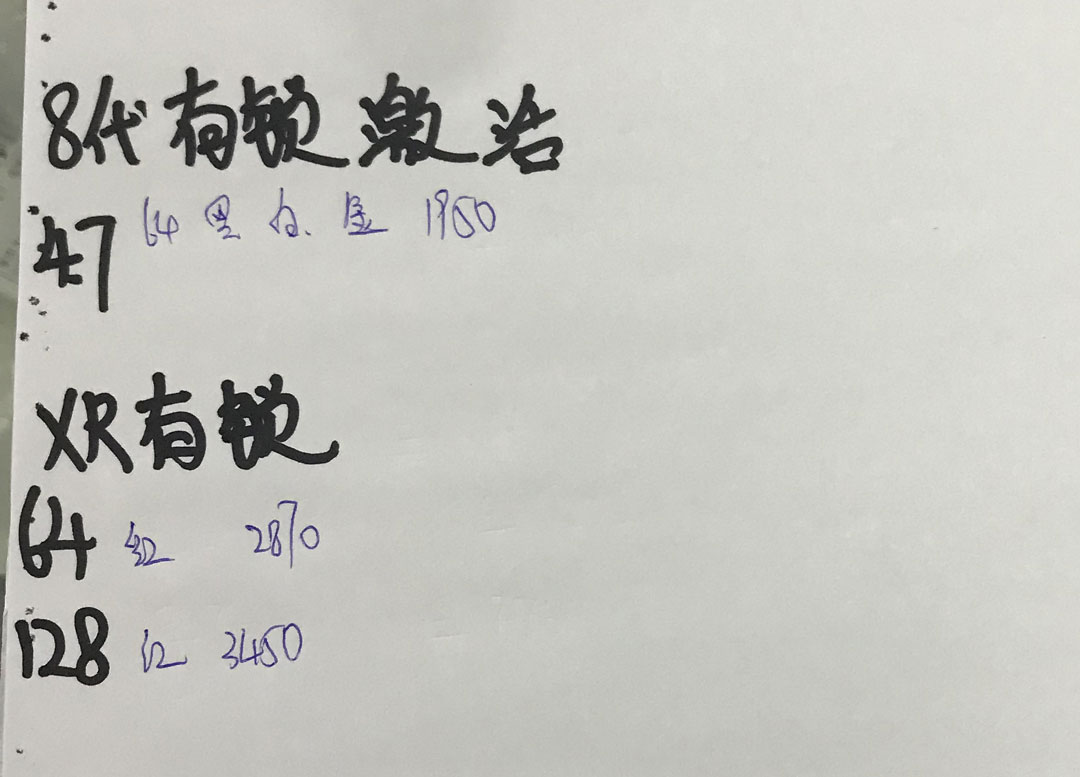 8代有锁激活
47 64 黑 白、金 1950
XR有锁
64 红 2870
128 红 3450